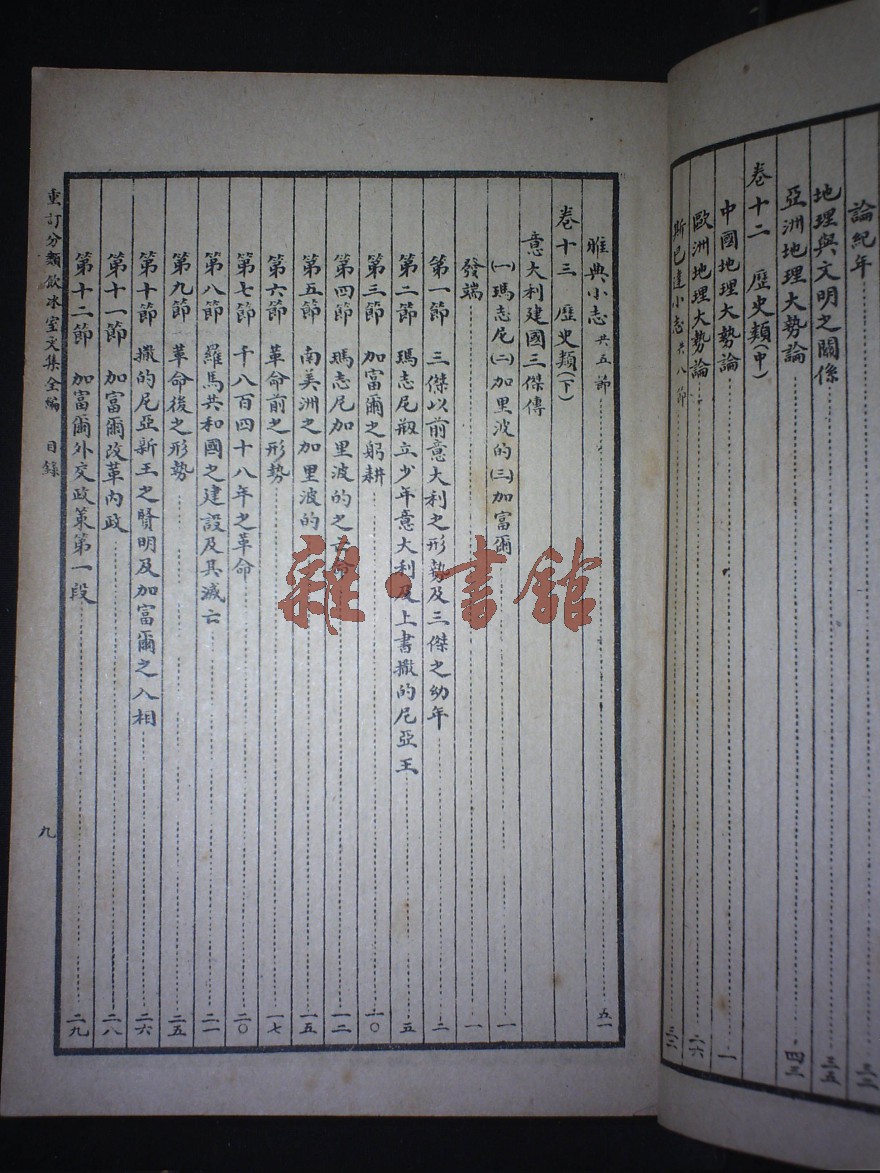 論紀年 三三
地理與文明之關係 三五
亞洲地理大勢論 四三
卷十二 歷史類(中)
中國地理大勢論 一
歐洲地理大勢論 二六
斯巴達小志 共八節 三二
雅典小志 共五節 五一
卷十三 歷史類(下)
意大利建國三傑傳
(一)瑪志尼(二)加里波的(三)加富爾 一
發端 一
第一節 三傑以前意大利之形勢及三傑之幼年 二
第二節 瑪志尼剏立少年意大利及上書撒的尼亞王 五
第三節 加富爾之躬耕 一〇
第四節 瑪志尼加里波的之亡命 一二
第五節 南美洲之加里波的 一五
第六節 革命前之形勢 一七
第七節 千八百四十八年之革命 二〇
第八節 羅馬共和國之建設及其滅亡 二一
第九節 革命後之形勢 二五
第十節 撒的尼亞新王之賢明及加富爾之入相 二六
第十一節 加富爾改革內政 二八
第十二節 加富爾外交政策第一段 二九
重訂分類飲冰室文集全編 目錄 九
雜·書館